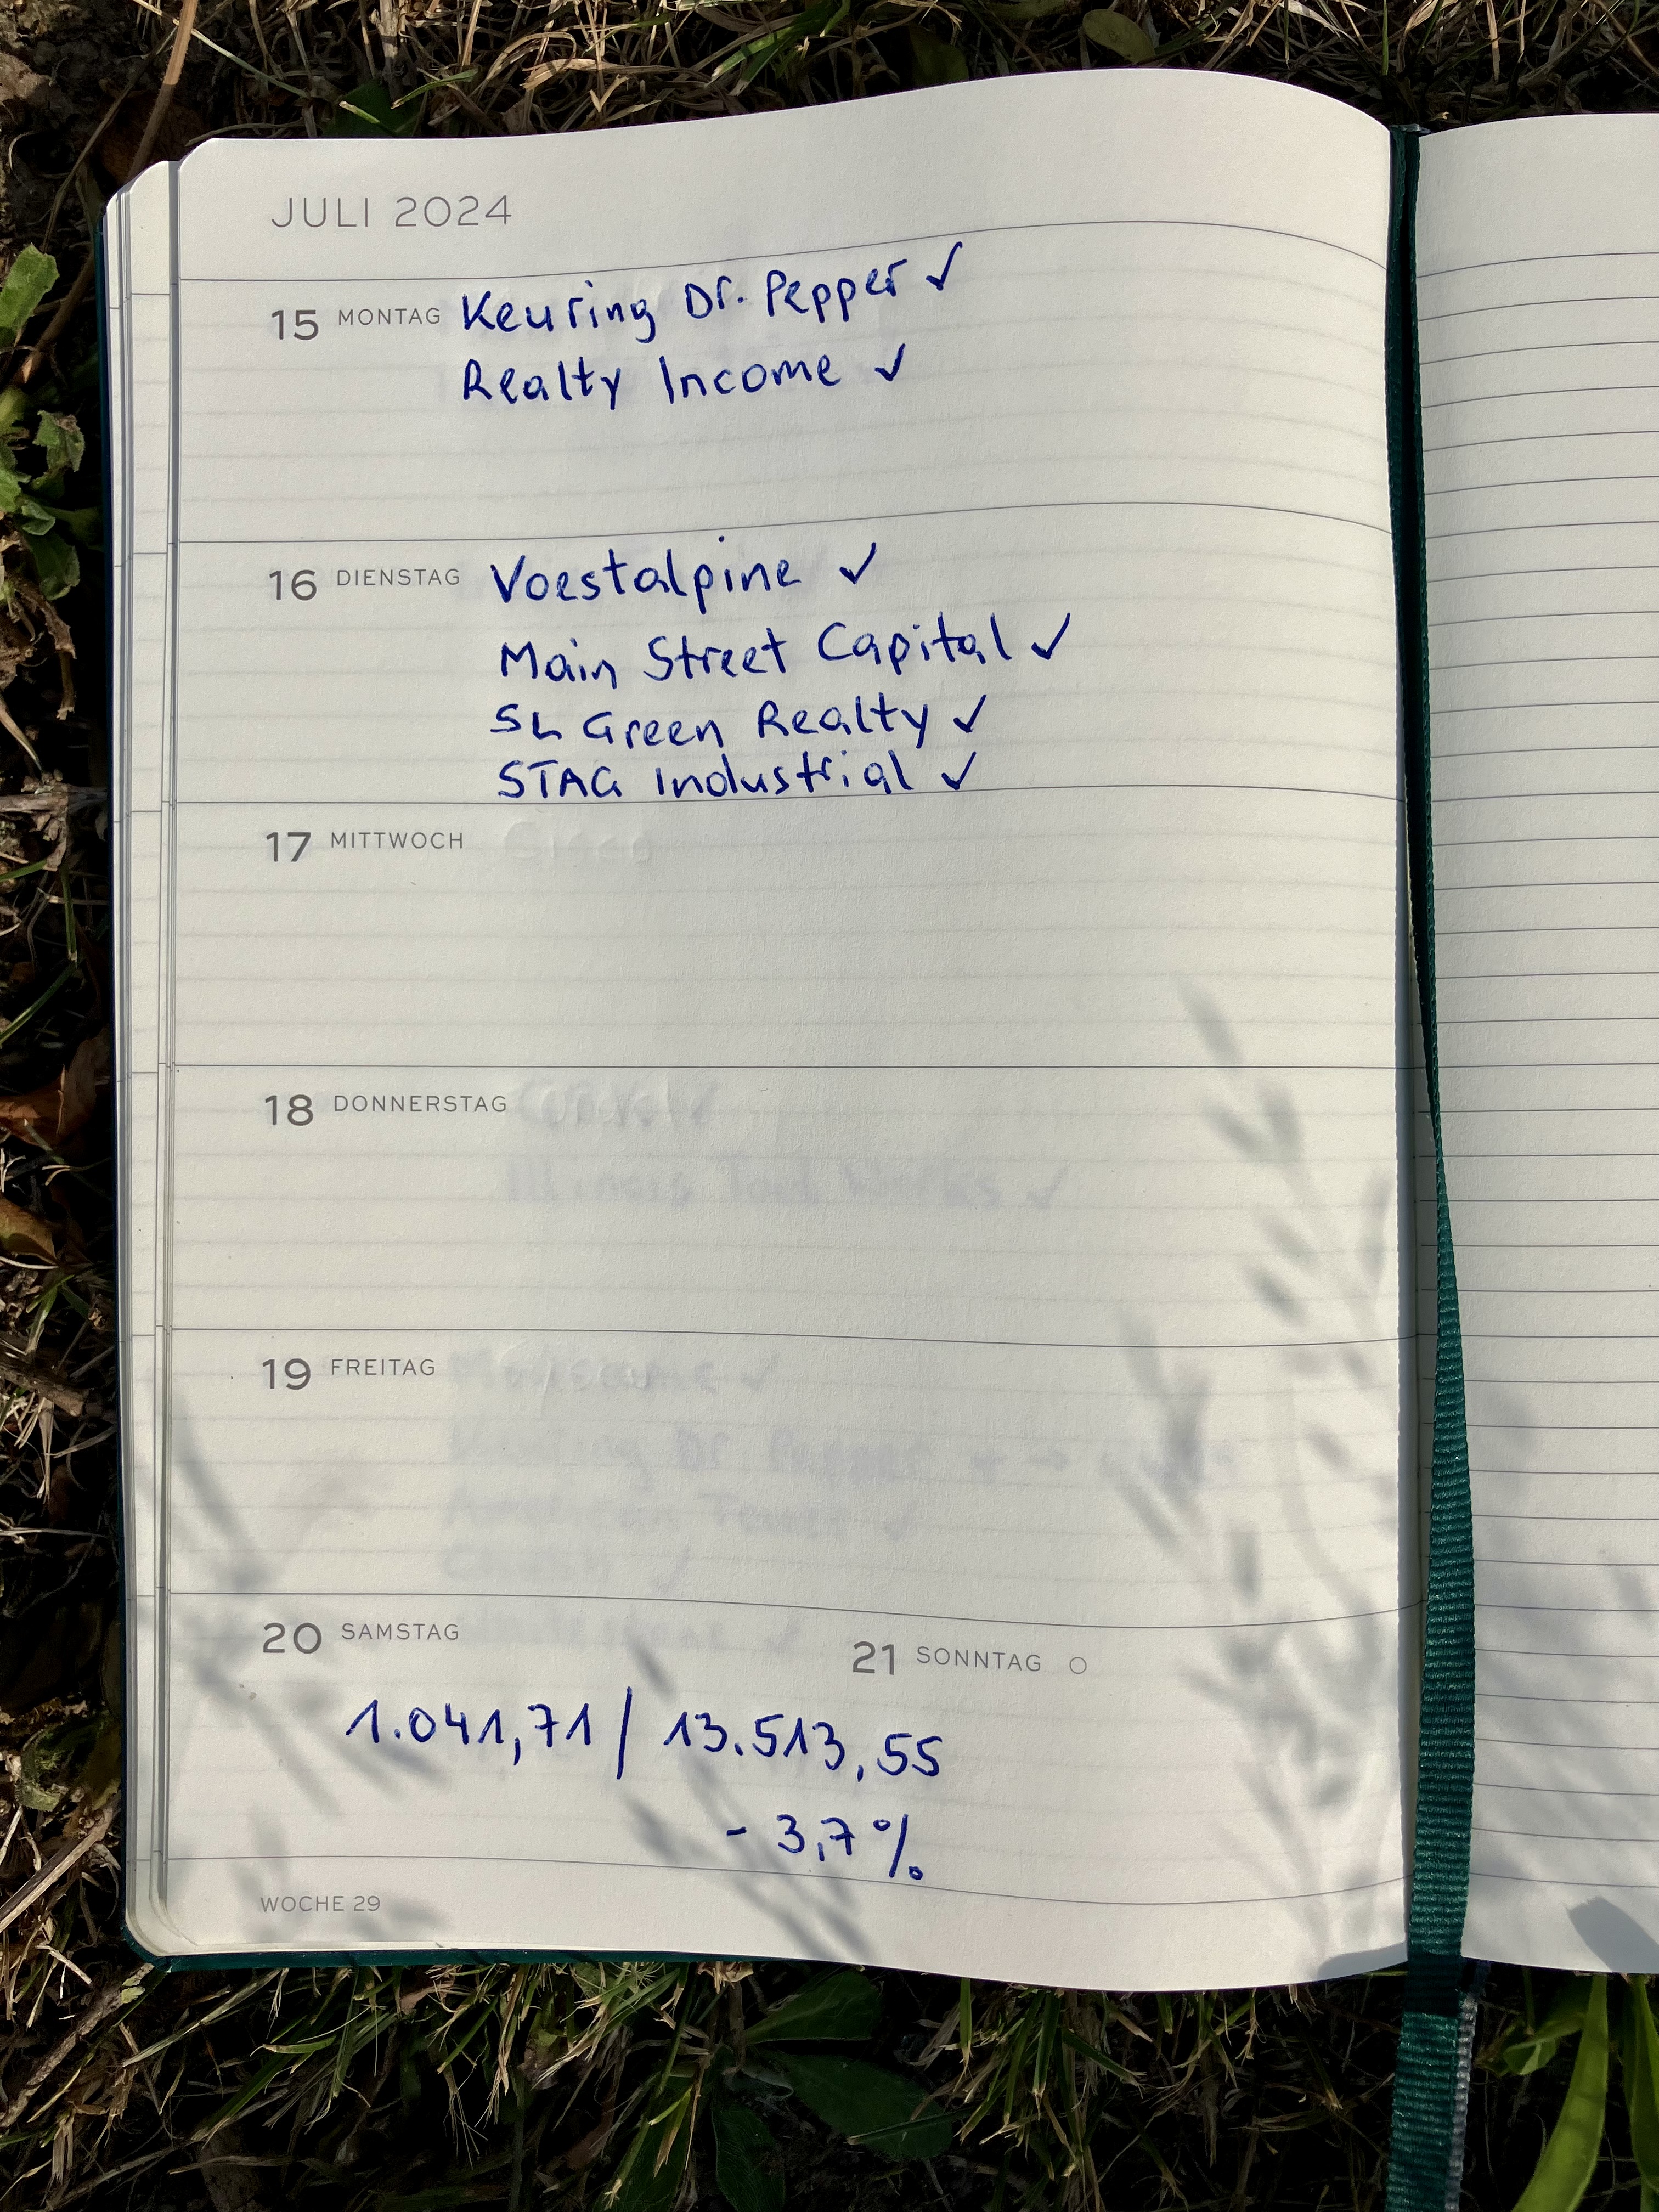 JULI 2024
15 MONTAG Keuring Dr. Pepper ✓
Realty Income ✓
16 DIENSTAG Voestalpine ✓
Main Street Capital ✓
SL Green Realty ✓
STAG Industrial ✓
17 MITTWOCH
18 DONNERSTAG
19 FREITAG
20 SAMSTAG
21 SONNTAG
1.041,71 / 13.513,55
- 3,7%
WOCHE 29